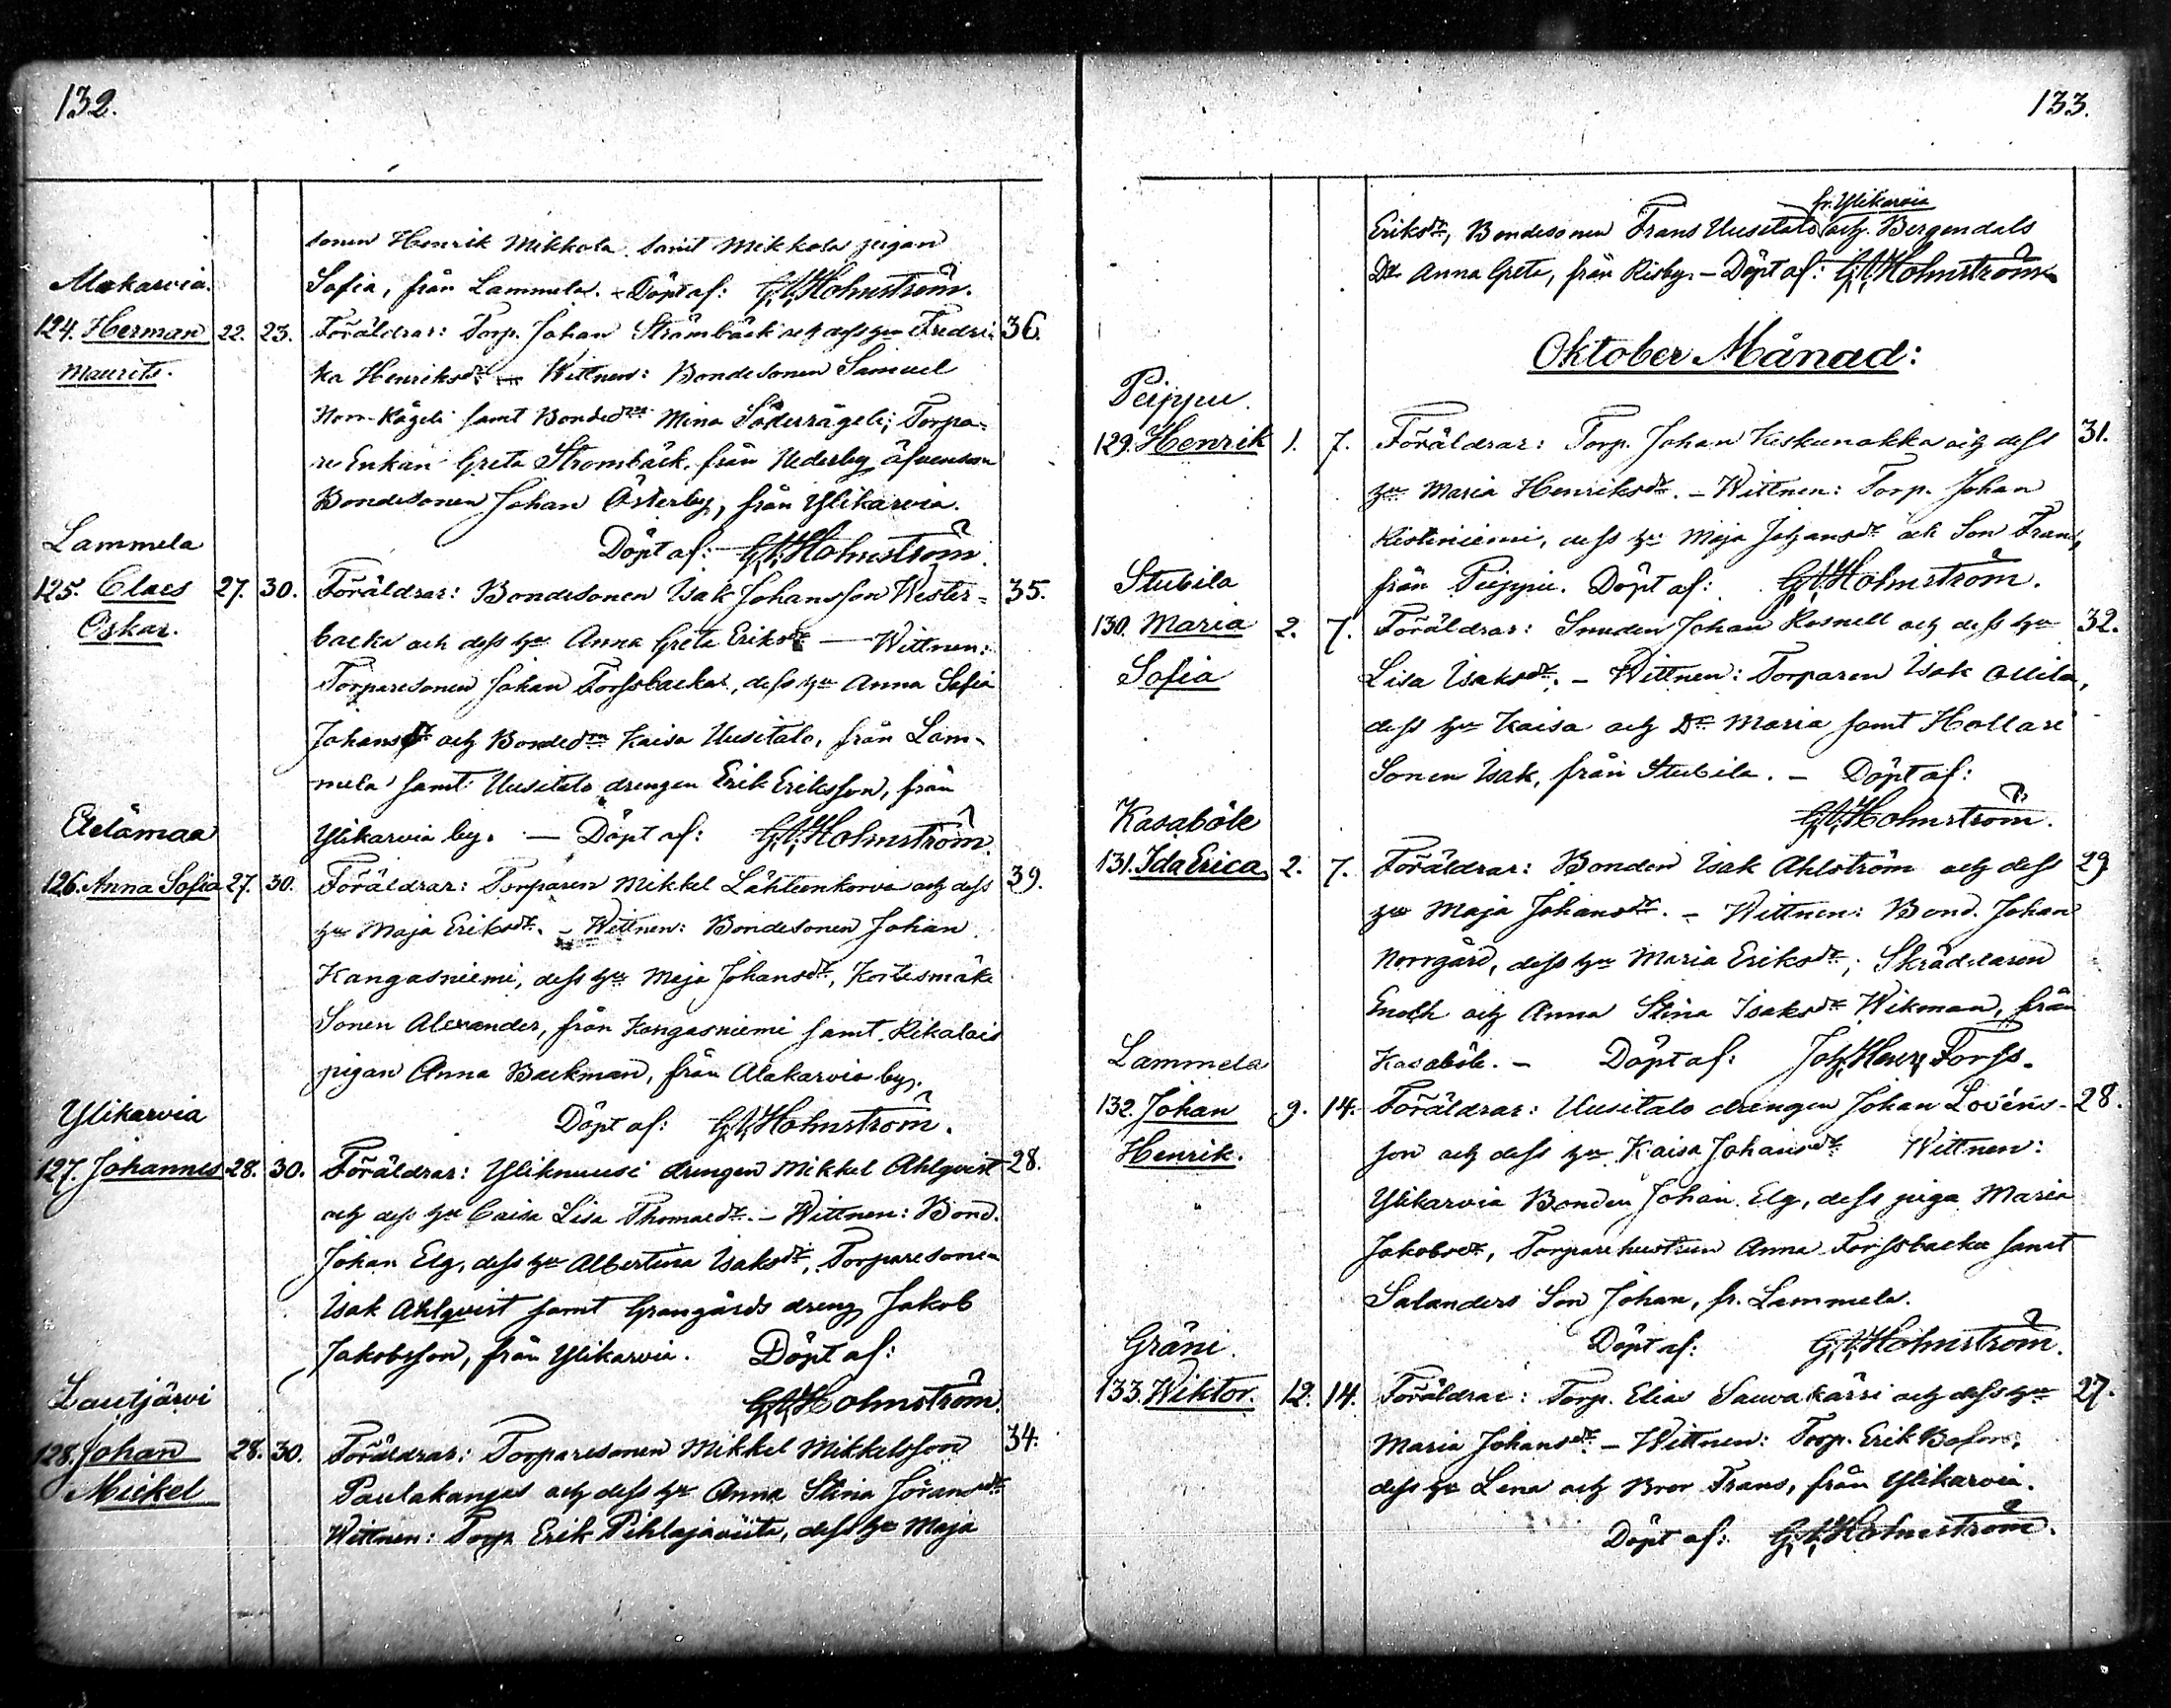 132.
sonen Henrik Mikkola samt Mikkola pigan
Alakarvia.
Sofia, från Lammela. - Döpt af: G.A. Holmström.
124. Herman 22. 23. Föräldrar: Torp. Johan Strömbäck och dess hu Fredri- 36.
Maurits.
ka Henriksdr. - Wittnen: Bondesonen Samuel
Norr-Rågeli samt Bondedrn Mina Söderrågeli; Torpa-
re Enkan Greta Strömbäck, från Nederby äfvensom
Bondesonen Johan Österby, från Ylikarvia.
Lammela
Döpt af: G.A. Holmström.
125. Claes 27. 30. Föräldrar: Bondesonen Isak Johansson Wester- 35.
Oskar.
backa och dess hu Anna Greta Eriksdr - Wittnen:
Torparesonen Johan Forssbacka, dess hu Anna Sofia
Johansdr och Bondedrn Kaisa Uusitalo, från Lam-
mela samt Uusitalo drengen Erik Eriksson, från
Etelämaa
Ylikarvia by. - Döpt af: G.A. Holmström.
126. Anna Sofia 27. 30. Föräldrar: Torparen Mikkel Lähteenkorva och dess 39.
hu Maja Eriksdr. - Wittnen: Bondesonen Johan
Kangasniemi, dess hu Maja Johansdr, Kortesmäki
Sonen Alexander, från Kangasniemi samt Rikalais
pigan Anna Backman, från Alakarvia by.
Ylikarvia
Döpt af: G.A. Holmström.
127. Johannes 28. 30. Föräldrar: Yliknuusi drengen Mikkel Ahlqvist 28.
och dess hu Caisa Lisa Thomasdr. - Wittnen: Bond.
Johan Elg, dess hu Albertina Isaksdr, Torparesonen
Isak Ahlqvist samt Grangårds dreng Jakob
Jakobsson, från Ylikarvia. Döpt af:
Lautjärvi
G.A. Holmström.
128. Johan 28. 30. Föräldrar: Torparesonen Mikkel Mikkelsson 34.
Mickel
Paulakangas och dess hu Anna Stina Göransdr
Wittnen: Torp. Erik Pihlajaviita, dess hu Maja
133.
fr. Ylikarvia
Eriksdr, Bondesonen Frans Uusitalo och Bergendals
Dr Anna Greta, från Risby. - Döpt af: G.A. Holmström.
Oktober Månad:
Peippu.
129. Henrik 1. 7. Föräldrar: Torp. Johan Keskunakka och dess 31.
hu Maria Henriksdr. - Wittnen: Torp. Johan
Ristiniemi, dess hu Maja Johansdr och Son Frans,
Stubila
från Peippu. Döpt af: G.A. Holmström.
130. Maria 2. 7. Föräldrar: Smeden Johan Rosnell och dess hu 32.
Sofia
Lisa Isaksdr. - Wittnen: Torparen Isak Ollila,
dess hu Kaisa och Dr Maria samt Hollari
Sonen Isak, från Stubila. - Döpt af:
Kasaböle
G.A. Holmström.
131. Ida Erica 2. 7. Föräldrar: Bonden Isak Ahlström och dess 29.
hu Maja Johansdr. - Wittnen: Bond. Johan
Norrgård, dess hu Maria Eriksdr, Skräddaren
Enoch och Anna Stina Isaksdr Wikman, från
Lammela
Kasaböle. - Döpt af: Joh. Henr. Forss.
132. Johan 9. 14. Föräldrar: Uusitalo drengen Johan Lovéns- 28.
Henrik.
son och dess hu Kaisa Johansdr Wittnen:
Ylikarvia Bonden Johan Elg, dess piga Maria
Jakobsdr, Torparehustrun Anna Forssbacka samt
Salanders Son Johan, fr. Lammela.
Gräni.
Döpt af: G.A. Holmström.
133. Wiktor. 12. 14. Föräldrar: Torp. Elias Sauvakärri och dess hu 27.
Maria Johansdr. - Wittnen: Torp. Erik
dess hu Lena och Bror Frans, från Ylikarvia.
Döpt af: G.A. Holmström.